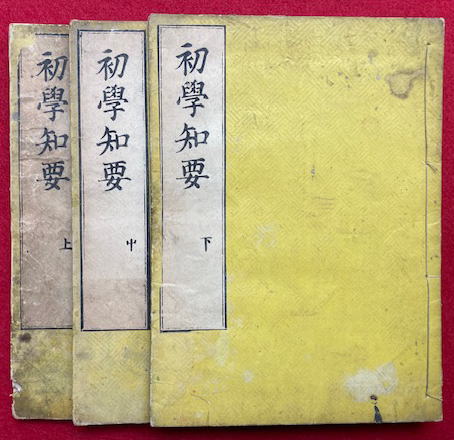 初學知要
上
初學知要
中
初學知要
下